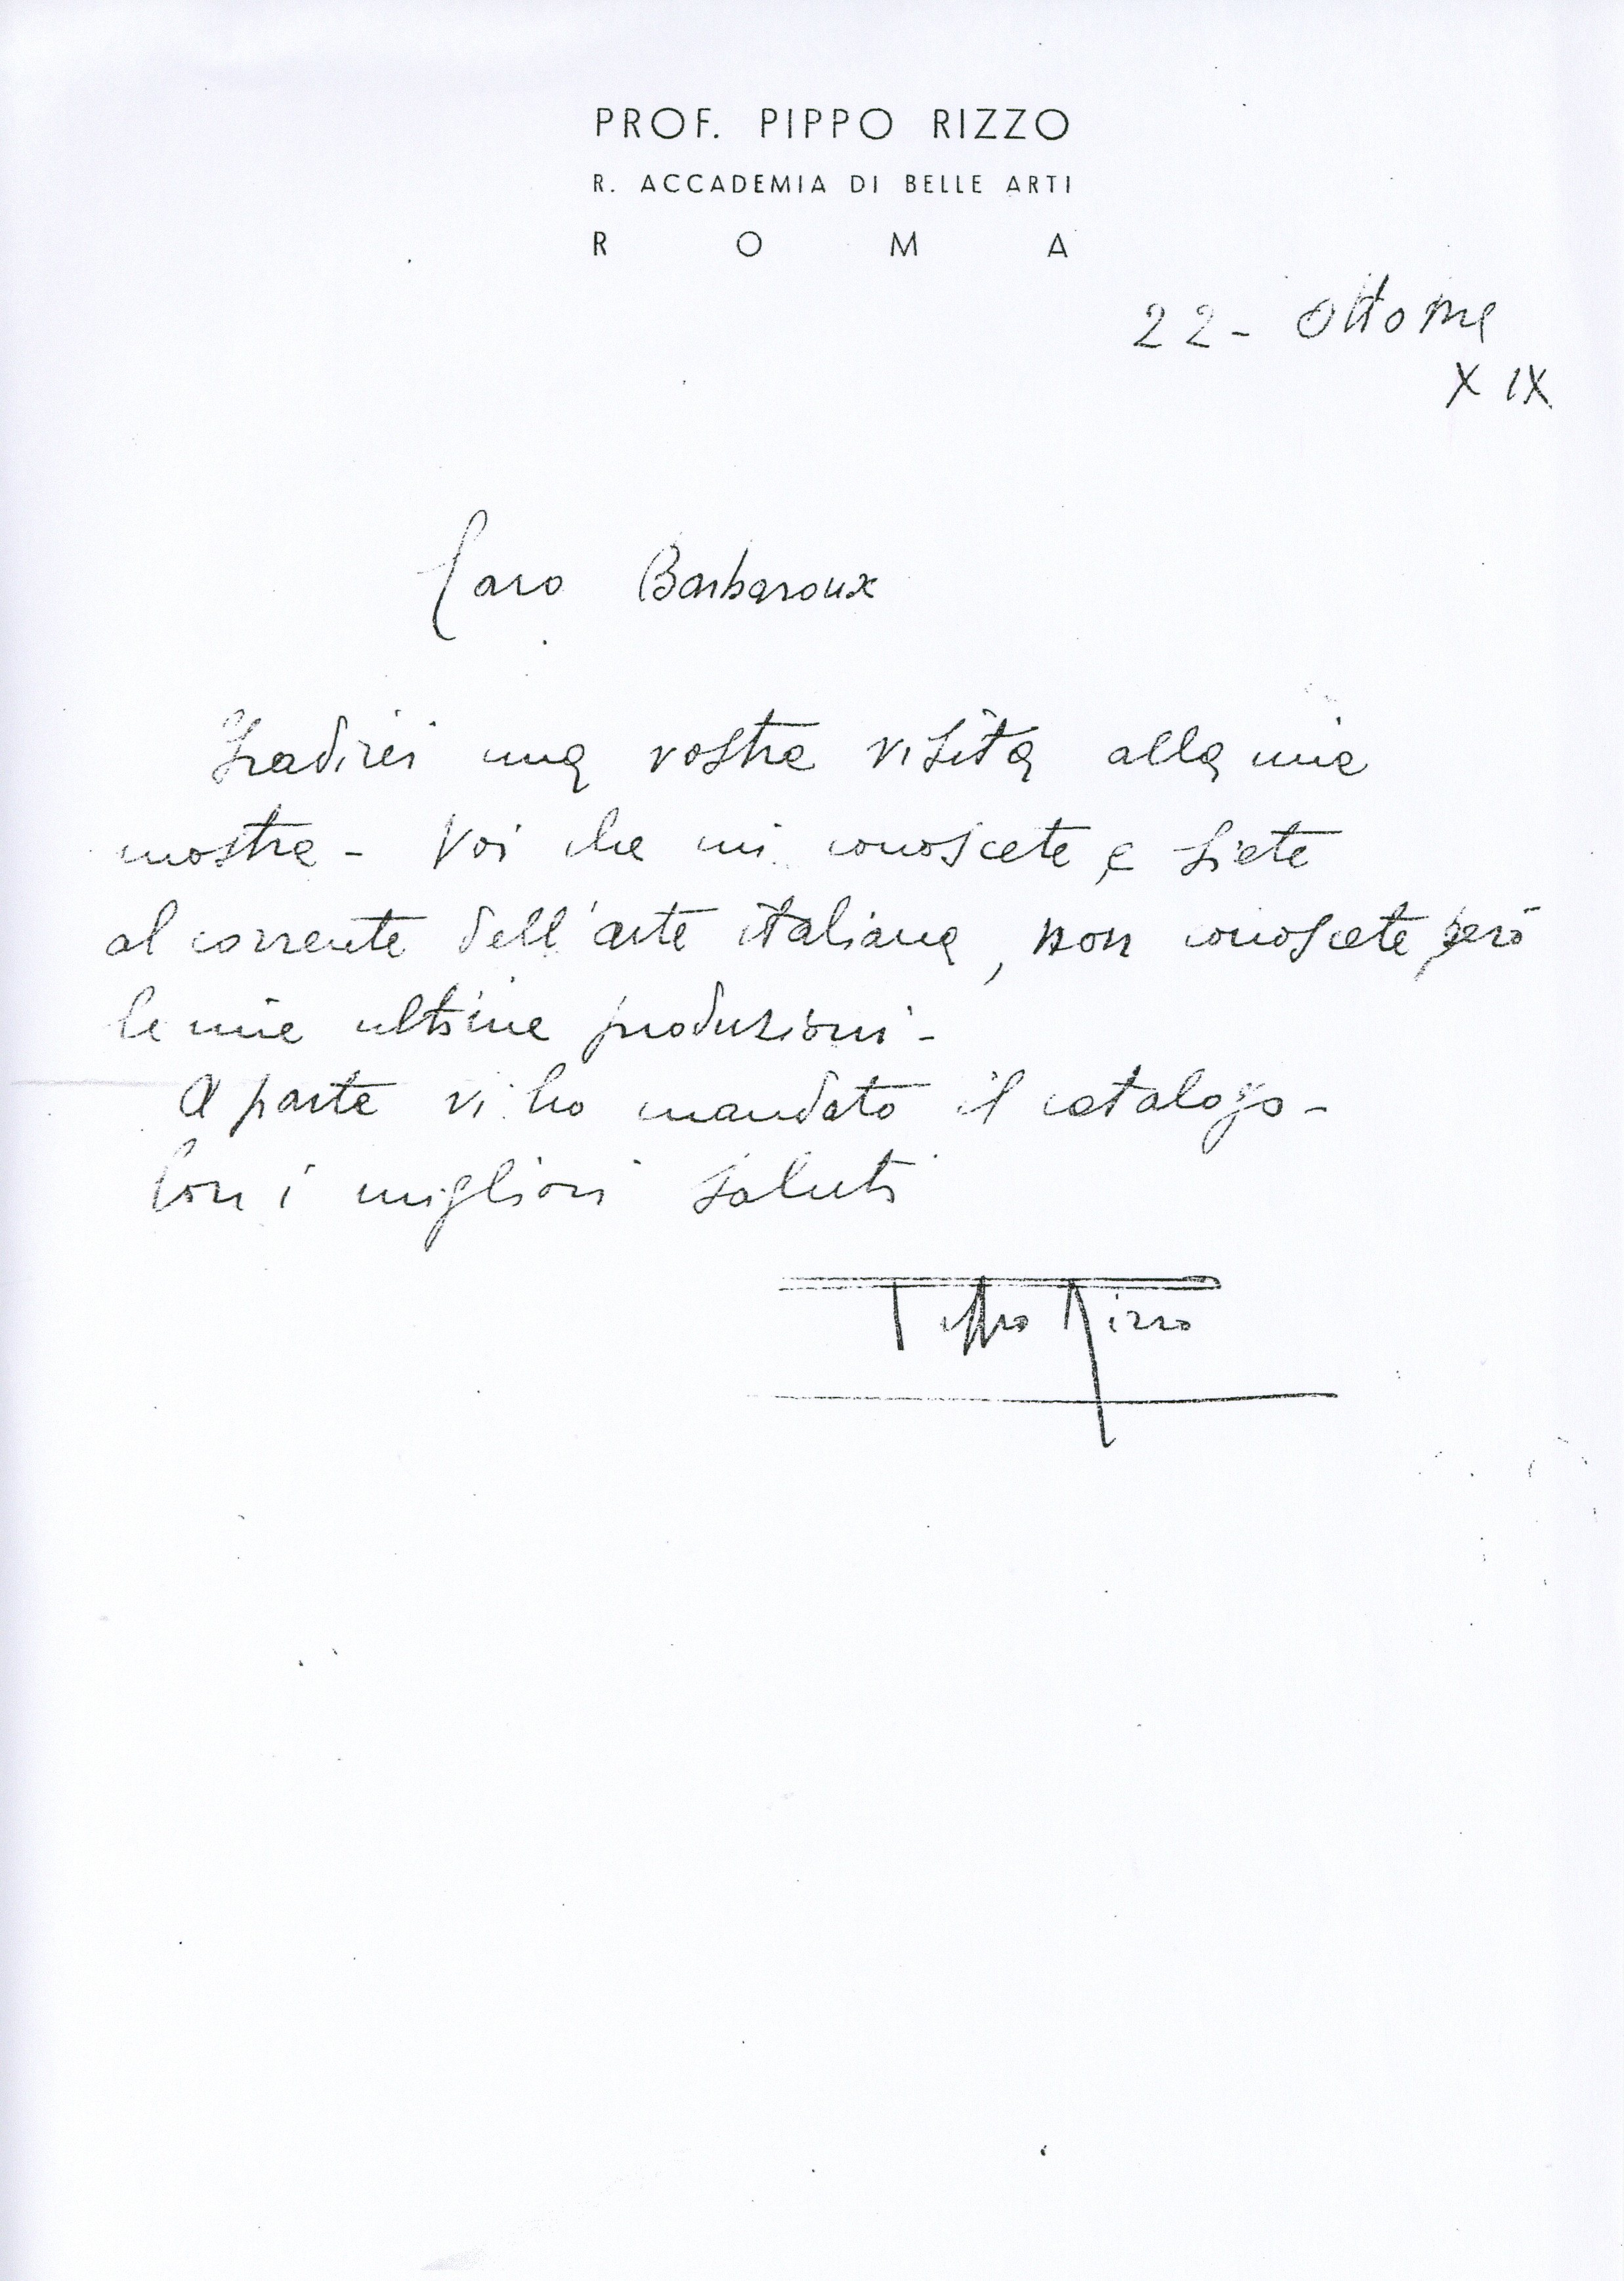 PROF. PIPPO RIZZO
R. ACCADEMIA DI BELLE ARTI
ROMA
22 - Ottobre
XIX
Caro Barbaroux
Gradirei una vostra visita alla mia
mostra - Voi che mi conoscete, e siete
al corrente dell'arte italiana, non conoscete però
le mie ultime produzioni -
A parte vi ho mandato il catalogo -
Con i migliori saluti
Pippo Rizzo